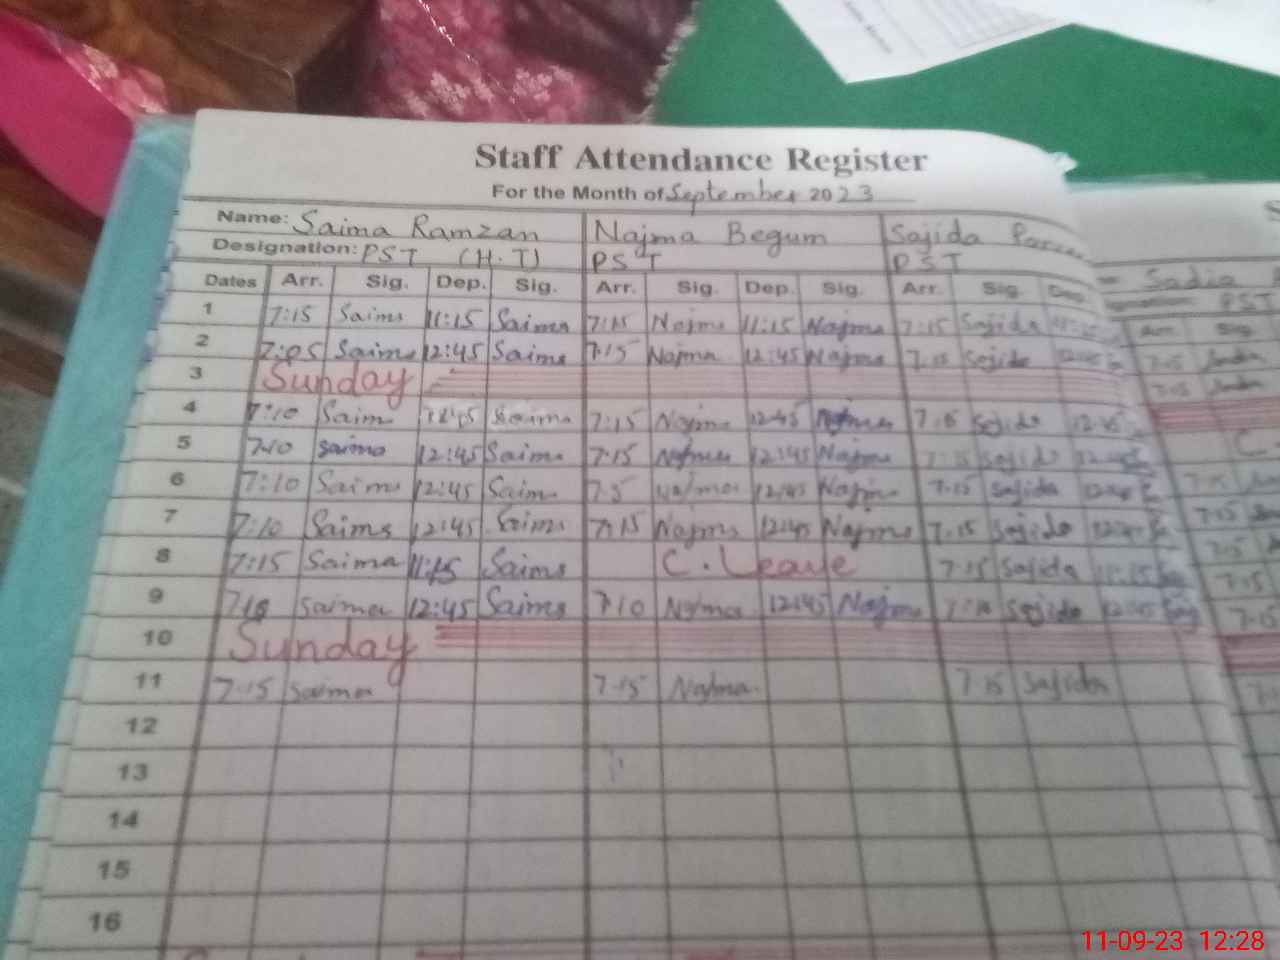 Staff Attendance Register
For the Month of September 2023
Name: Saima Ramzan Najma Begum Sajida
Designation: PST (H.T) PST PST
Dates Arr. Sig. Dep. Sig. Arr. Sig. Dep. Sig. Arr. Sig. Dep.
1 7:15 Saima 11:15 Saima 7:15 Najma 11:15 Najma 7:15 Sajida
2 7:05 Saima 12:45 Saima 7:15 Najma 12:45 Najma 7:15 Sajida
3 Sunday
4 7:10 Saima 12:45 Saima 7:15 Najma 12:45 Najma 7:15 Sajida 12:45
5 7:10 Saima 12:45 Saima 7:15 Najma 12:45 Najma 7:15 Sajida 12:45
6 7:10 Saima 12:45 Saima Najma 12:45 Najma 7:15 Sajida
7 7:10 Saima 12:45 Saima 7:15 Najma 12:45 Najma 7:15 Sajida
8 7:15 Saima 11:15 Saima C. Leave 7:15 Sajida 11:15
9 Saima 12:45 Saima 7:10 Najma 12:45 Najma Sajida 12:45
10 Sunday
11 7:15 Saima 7:15 Najma 7:15 Sajida
12
13
14
15
16
Sadia
PST
Arr. Sig.
7:15
7:15
7:15
7:15
7:15
7:15
7:15
11-09-23 12:28